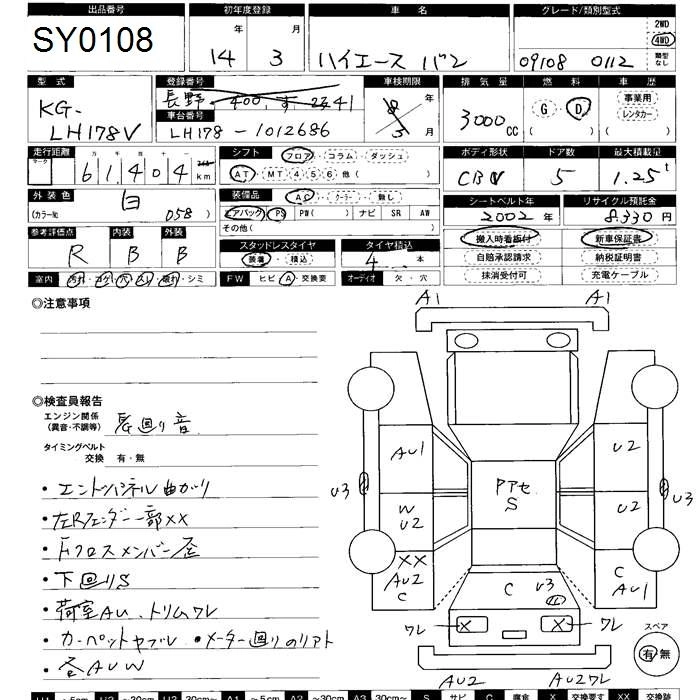 出品番号 初年度登録 車名 グレード/類別型式
SY0108 14年 3月 ハイエース バン 09108 0112 2WD 4WD 類型なし
型式 登録番号 車検期限 排気量 燃料 車歴
KG-LH178V 長野 400 す 2341 8年 3月 3000cc G D 事業用 レンタカー
車台番号
LH178-1012686
走行距離 シフト ボディ形状 ドア数 最大積載量
マーク 万 千 百 十 一 フロア・コラム・ダッシュ
6 1, 4 0 4 km AT・MT 4 5 6 他( ) CBV 5 1.25t
外装色 装備品 AC・クーラー・無し シートベルト年 リサイクル預託金
(カラーNo. 白 058) エアバック PS PW( ) ナビ SR AW 2002年 8,330円
その他( )
参考評価点 内装 外装 スタッドレスタイヤ タイヤ積込 搬入時看板付 新車保証書
R B B 装着・積込 4本 自賠承認請求 納税証明書
室内 汚れ・コゲ・穴・スレ・破れ・シミ FW ヒビ・A・交換要 オーディオ 欠・穴 抹消受付可 充電ケーブル
◎注意事項
◎検査員報告
エンジン関係
(異音・不調等) 長廻り音
タイミングベルト
交換 有・無
・エンドパネル曲がり
・左Rフェンダー一部XX
・Fクロスメンバー歪
・下回りS
・荷室AU、トリムワレ
・カーペットヤブレ ・メーター廻りのリフト
・各AUW
A1 A1
AU1 U2
U3 W U2 アアセ S U2 U3
XX AU2 C C U3 C AU1
ワレ X X ワレ
AU2 AU2ワレ
スペア
有 無
S サビ C 腐食 X 交換要す XX 交換跡